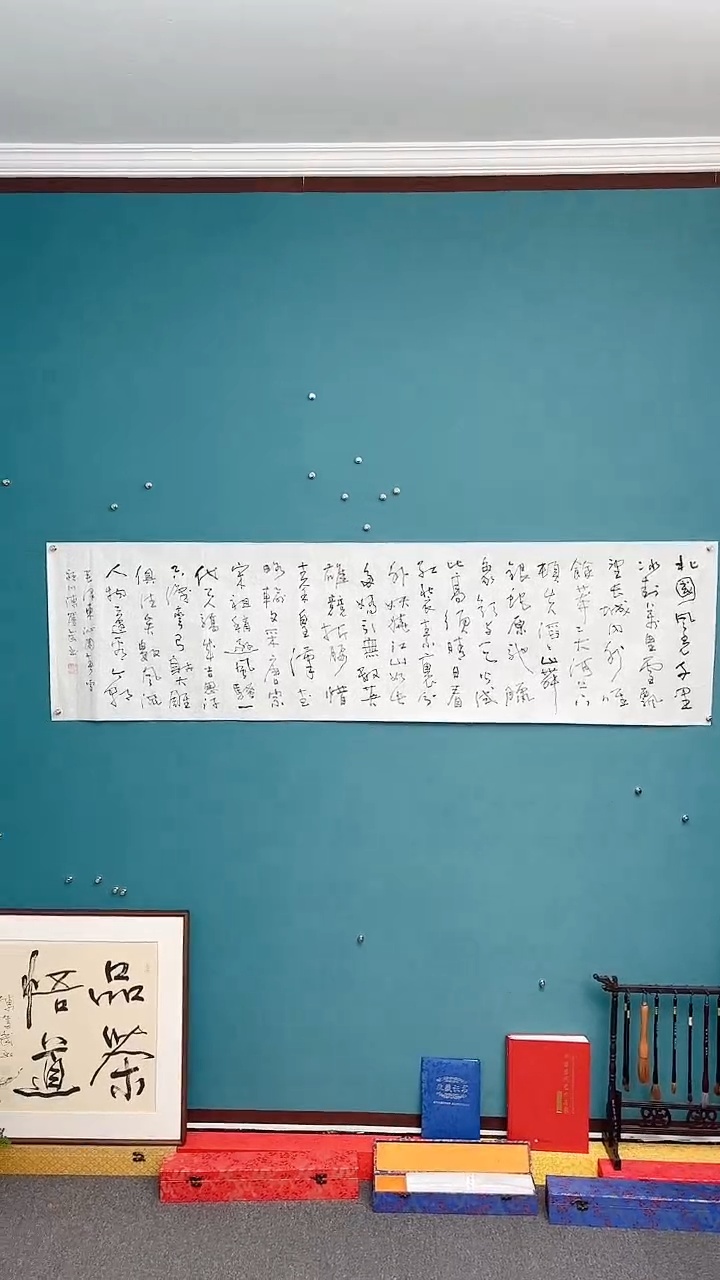 北國風光千里
冰封萬里雪飄
望长城内外惟
餘莽莽大河上下
頓失滔滔山舞
銀蛇原馳臘
象欲与天公试
比高須晴日看
紅裝素裹分
外妖嬈江山如此
多嬌引無數英
雄競折腰惜
秦皇漢武
略輸文采唐宗
宋祖稍遜風騷一
代天驕成吉思汗
只識彎弓射大雕
俱往矣數風流
人物還看今朝
毛澤東沁園春雪
品茶
悟道
收藏证书